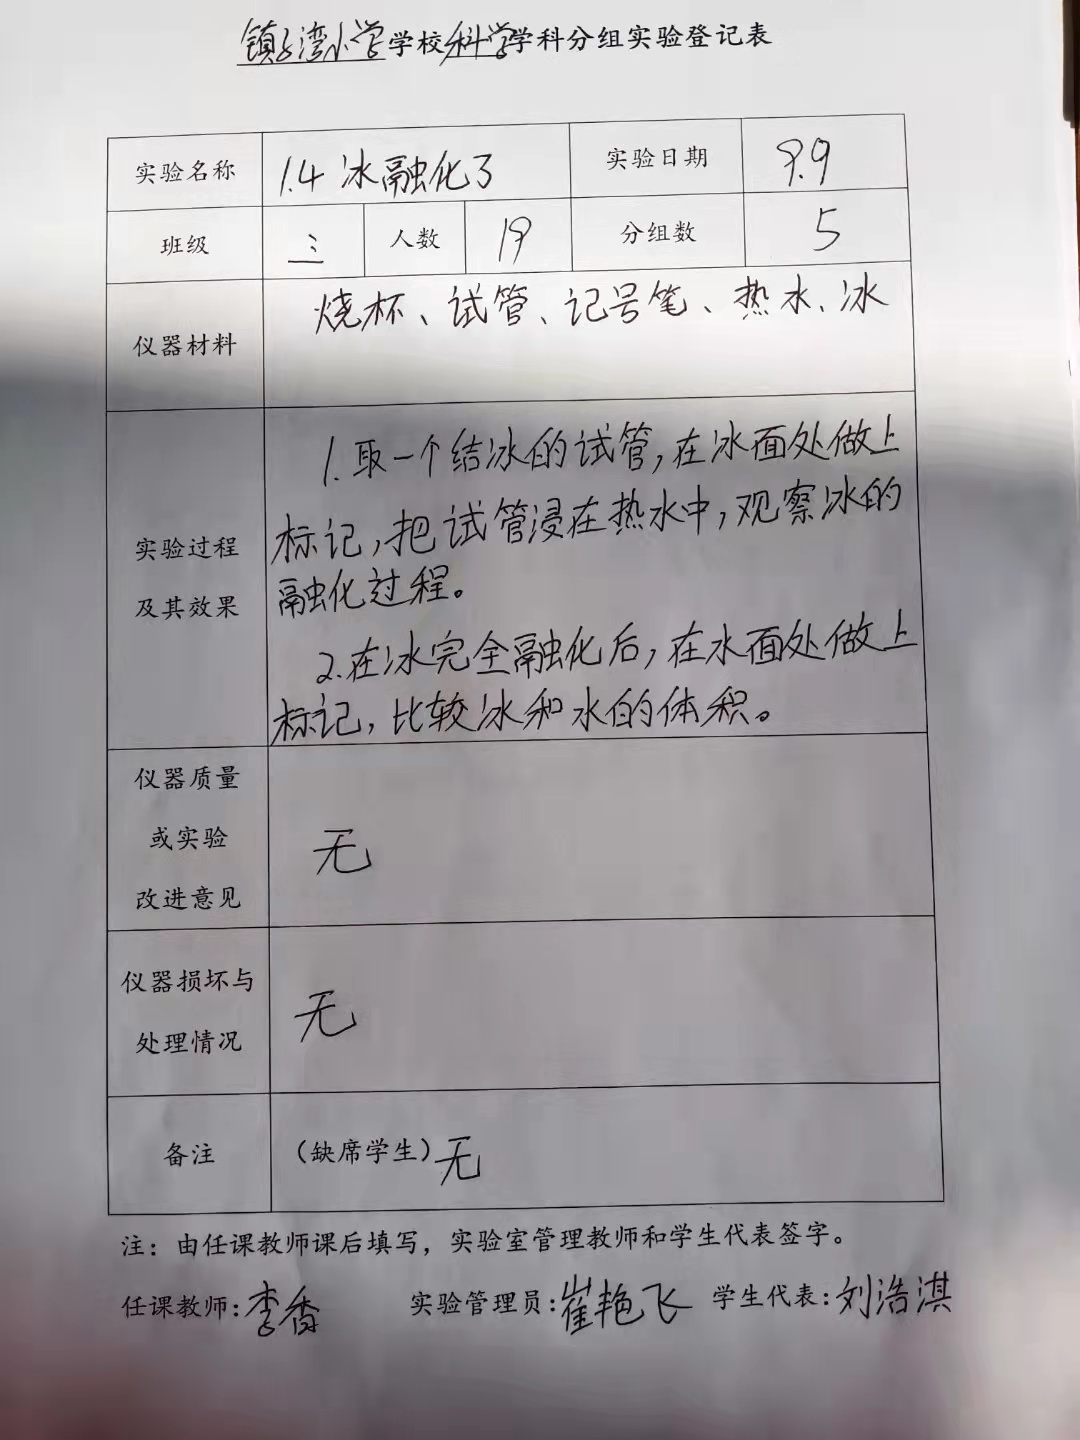 镇子湾小学学校科学学科分组实验登记表
实验名称 1.4 冰融化了 实验日期 9.9
班级 三 人数 19 分组数 5
仪器材料 烧杯、试管、记号笔、热水、冰
实验过程
及其效果
1.取一个结冰的试管,在冰面处做上
标记,把试管浸在热水中,观察冰的
融化过程。
2.在冰完全融化后,在水面处做上
标记,比较冰和水的体积。
仪器质量
或实验
改进意见
无
仪器损坏与
处理情况
无
备注 (缺席学生)无
注:由任课教师课后填写,实验室管理教师和学生代表签字。
任课教师:李香 实验管理员:崔艳飞 学生代表:刘浩淇